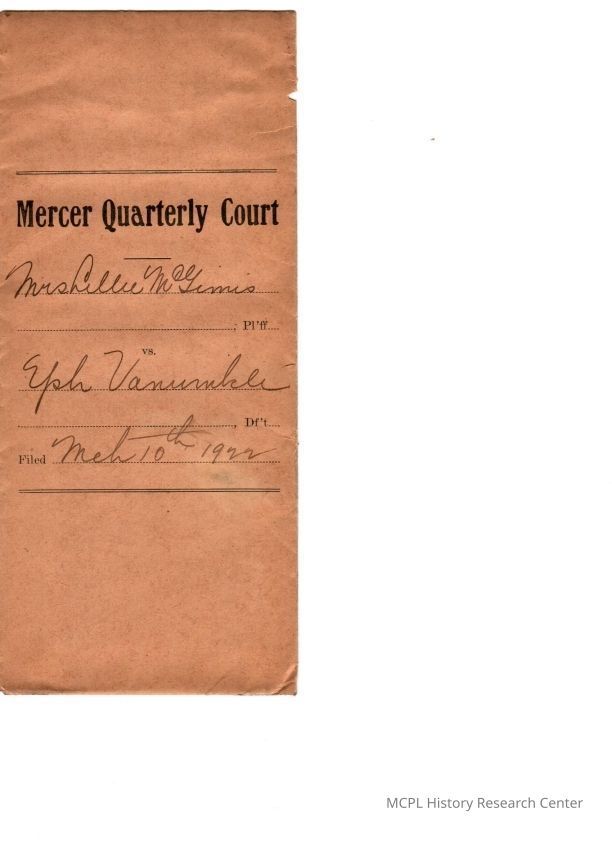 Mercer Quarterly Court
Mrs Lillie McGinnis
, Pl'ff
vs.
Eph Vanwinkle
, Df't.
Filed Mch 10th 1922
MCPL History Research Center